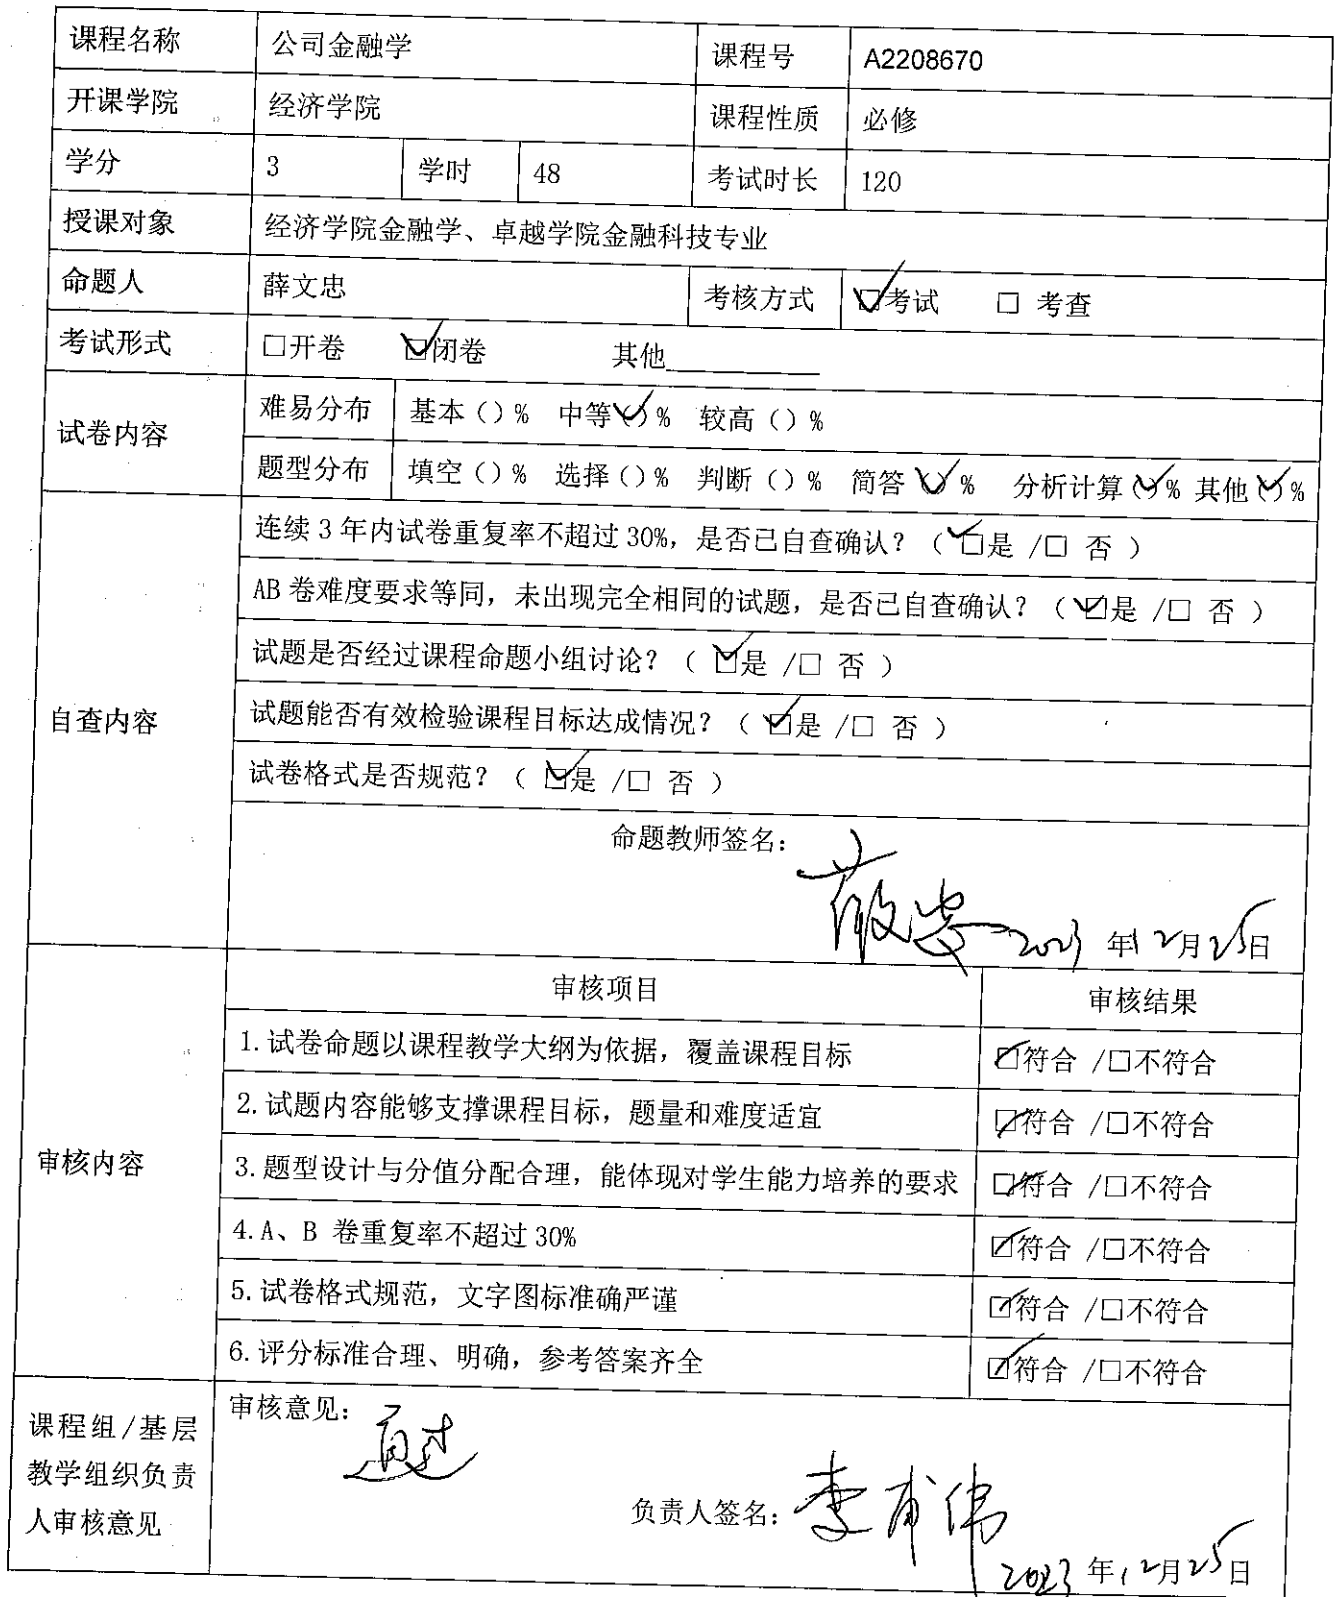 课程名称 公司金融学 课程号 A2208670
开课学院 经济学院 课程性质 必修
学分 3 学时 48 考试时长 120
授课对象 经济学院金融学、卓越学院金融科技专业
命题人 薛文忠 考核方式 ☑考试 □ 考查
考试形式 □开卷 ☑闭卷 其他
试卷内容 难易分布 基本()% 中等(✓)% 较高()%
题型分布 填空()% 选择()% 判断()% 简答(✓)% 分析计算(✓)% 其他(✓)%
自查内容
连续3年内试卷重复率不超过30%，是否已自查确认？（ ☑是 /□ 否 ）
AB卷难度要求等同，未出现完全相同的试题，是否已自查确认？（ ☑是 /□ 否 ）
试题是否经过课程命题小组讨论？（ ☑是 /□ 否 ）
试题能否有效检验课程目标达成情况？（ ☑是 /□ 否 ）
试卷格式是否规范？（ ☑是 /□ 否 ）
命题教师签名：
2023 年12月25日
审核内容
审核项目 审核结果
1.试卷命题以课程教学大纲为依据，覆盖课程目标 ☑符合 /□不符合
2.试题内容能够支撑课程目标，题量和难度适宜 ☑符合 /□不符合
3.题型设计与分值分配合理，能体现对学生能力培养的要求 ☑符合 /□不符合
4.A、B 卷重复率不超过30% ☑符合 /□不符合
5.试卷格式规范，文字图标准确严谨 ☑符合 /□不符合
6.评分标准合理、明确，参考答案齐全 ☑符合 /□不符合
课程组/基层
教学组织负责
人审核意见
审核意见：通过
负责人签名：李甫伟
2023 年12月25日